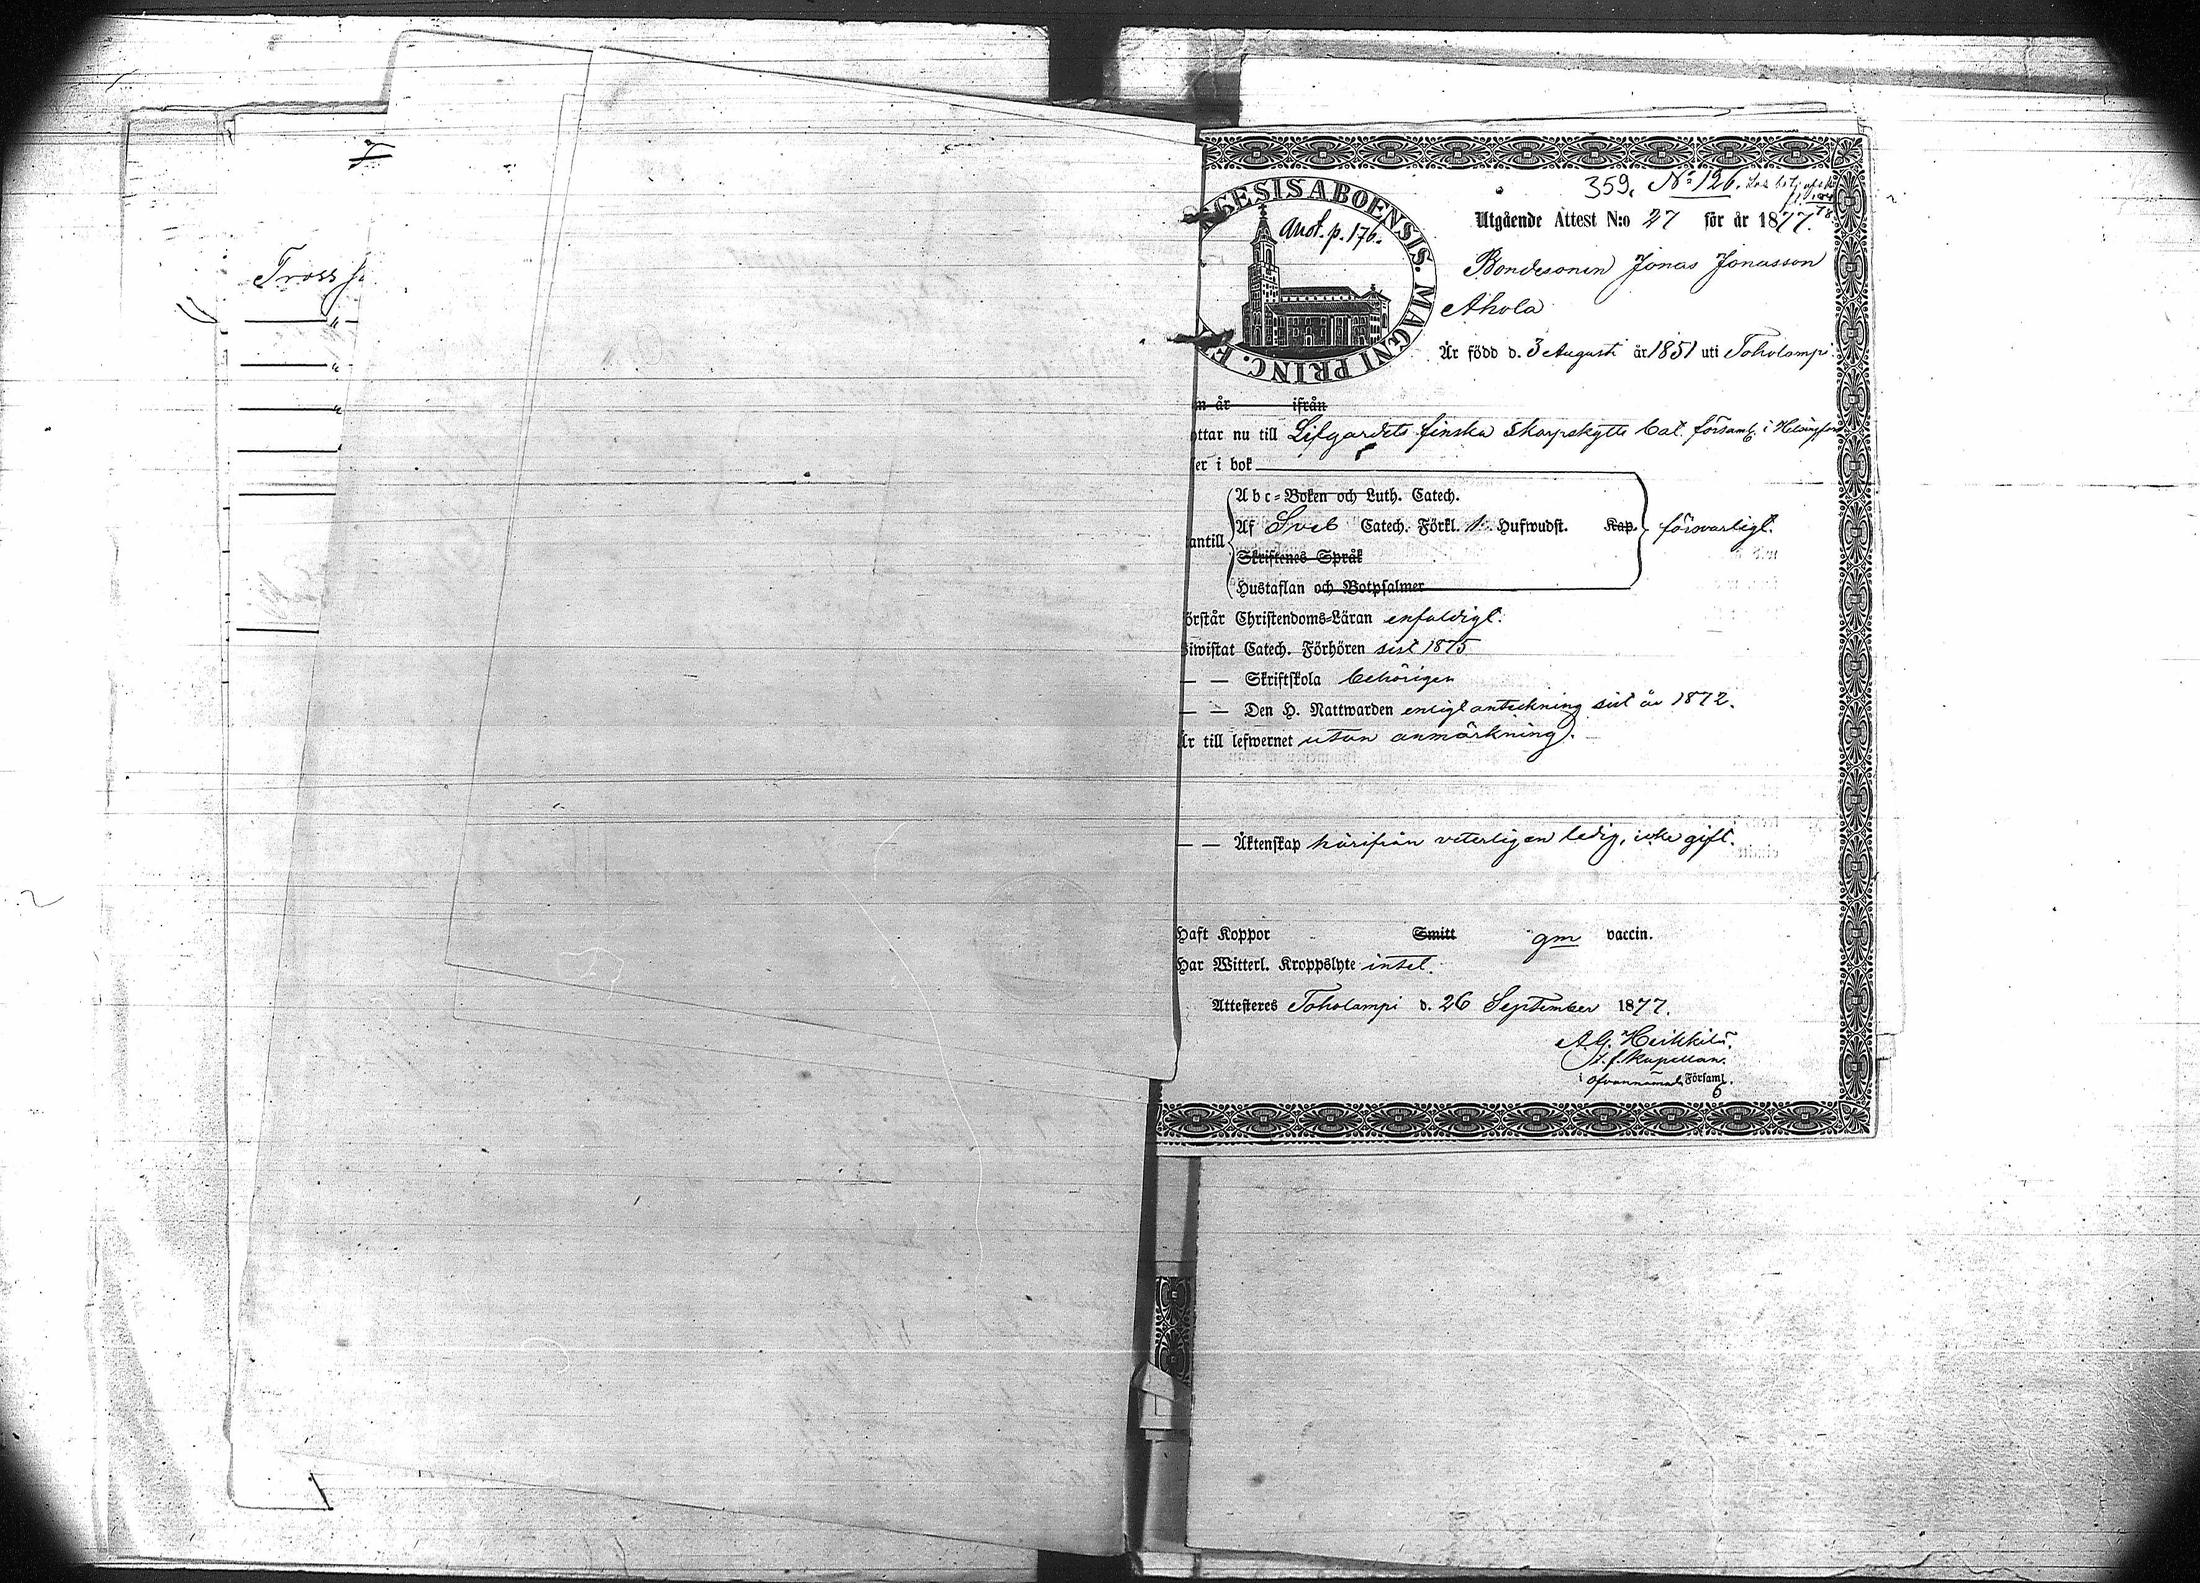 Tross
"
"
"
359. No 126.
GESIS ABOENSIS. MAGNI PRINC. F
Anot. p. 176.
Utgående Attest N:o 27 för år 1877.
Bondesonen Jonas Jonasson
Ahola
Är född d. 3 Augusti år 1851 uti Toholampi.
n år ifrån
ttar nu till Lifgardets finska skarpskytte bat. församl. i Helsingfors
er i bok
Abc-Boken och Luth. Catech.
Af Sveb Catech. Förkl. 1 Hufwudst. Kap. försvarligt.
antill
Skriftenes Språk
Hustaflan och Botpsalmer
örstår Christendoms-Läran enfaldigt.
iwistat Catech. Förhören sist 1875
— — Skriftskola behörigen
— — Den H. Nattwarden enligt anteckning sist år 1872.
Är till lefwernet utan anmärkning.
— — Äktenskap härifrån veterligen ledig, icke gift.
Haft Koppor Smitt gm vaccin.
Har Witterl. Kroppslyte intet.
Attesteres Toholampi d. 26 September 1877.
A.G. Heikkilä.
t.f. kapellan.
i ofvannämnde Församl.